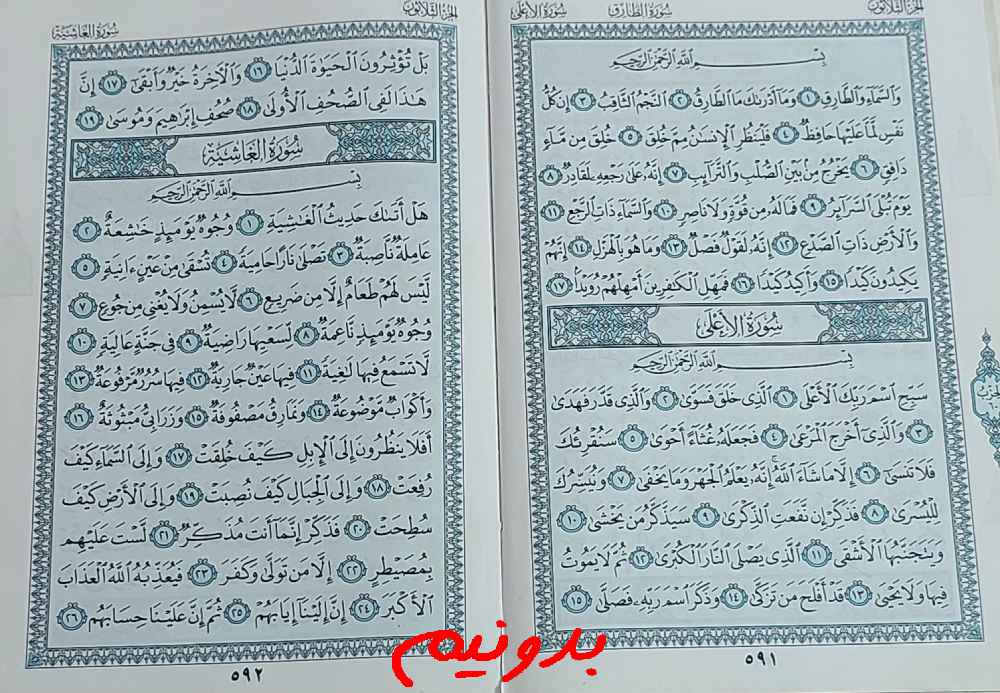 الجزء الثلاثون
سورة الطارق
سورة الأعلى
بِسْمِ ٱللَّهِ ٱلرَّحْمَٰنِ ٱلرَّحِيمِ
وَٱلسَّمَآءِ وَٱلطَّارِقِ ١ وَمَآ أَدْرَىٰكَ مَا ٱلطَّارِقُ ٢ ٱلنَّجْمُ ٱلثَّاقِبُ ٣ إِن كُلُّ
نَفْسٍ لَّمَّا عَلَيْهَا حَافِظٌ ٤ فَلْيَنظُرِ ٱلْإِنسَٰنُ مِمَّ خُلِقَ ٥ خُلِقَ مِن مَّآءٍ
دَافِقٍ ٦ يَخْرُجُ مِنۢ بَيْنِ ٱلصُّلْبِ وَٱلتَّرَآئِبِ ٧ إِنَّهُۥ عَلَىٰ رَجْعِهِۦ لَقَادِرٌ ٨
يَوْمَ تُبْلَى ٱلسَّرَآئِرُ ٩ فَمَا لَهُۥ مِن قُوَّةٍ وَلَا نَاصِرٍ ١٠ وَٱلسَّمَآءِ ذَاتِ ٱلرَّجْعِ ١١
وَٱلْأَرْضِ ذَاتِ ٱلصَّدْعِ ١٢ إِنَّهُۥ لَقَوْلٌ فَصْلٌ ١٣ وَمَا هُوَ بِٱلْهَزْلِ ١٤ إِنَّهُمْ
يَكِيدُونَ كَيْدًا ١٥ وَأَكِيدُ كَيْدًا ١٦ فَمَهِّلِ ٱلْكَٰفِرِينَ أَمْهِلْهُمْ رُوَيْدًۢا ١٧
سُورَةُ الأَعْلَىٰ
بِسْمِ ٱللَّهِ ٱلرَّحْمَٰنِ ٱلرَّحِيمِ
سَبِّحِ ٱسْمَ رَبِّكَ ٱلْأَعْلَى ١ ٱلَّذِى خَلَقَ فَسَوَّىٰ ٢ وَٱلَّذِى قَدَّرَ فَهَدَىٰ
٣ وَٱلَّذِىٓ أَخْرَجَ ٱلْمَرْعَىٰ ٤ فَجَعَلَهُۥ غُثَآءً أَحْوَىٰ ٥ سَنُقْرِئُكَ
فَلَا تَنسَىٰٓ ٦ إِلَّا مَا شَآءَ ٱللَّهُ ۚ إِنَّهُۥ يَعْلَمُ ٱلْجَهْرَ وَمَا يَخْفَىٰ ٧ وَنُيَسِّرُكَ
لِلْيُسْرَىٰ ٨ فَذَكِّرْ إِن نَّفَعَتِ ٱلذِّكْرَىٰ ٩ سَيَذَّكَّرُ مَن يَخْشَىٰ ١٠
وَيَتَجَنَّبُهَا ٱلْأَشْقَى ١١ ٱلَّذِى يَصْلَى ٱلنَّارَ ٱلْكُبْرَىٰ ١٢ ثُمَّ لَا يَمُوتُ
فِيهَا وَلَا يَحْيَىٰ ١٣ قَدْ أَفْلَحَ مَن تَزَكَّىٰ ١٤ وَذَكَرَ ٱسْمَ رَبِّهِۦ فَصَلَّىٰ ١٥
٥٩١
الجزء الثلاثون
سورة الغاشية
بَلْ تُؤْثِرُونَ ٱلْحَيَوٰةَ ٱلدُّنْيَا ١٦ وَٱلْءَاخِرَةُ خَيْرٌ وَأَبْقَىٰٓ ١٧ إِنَّ
هَٰذَا لَفِى ٱلصُّحُفِ ٱلْأُولَىٰ ١٨ صُحُفِ إِبْرَٰهِيمَ وَمُوسَىٰ ١٩
سُورَةُ الغَاشِيَةِ
بِسْمِ ٱللَّهِ ٱلرَّحْمَٰنِ ٱلرَّحِيمِ
هَلْ أَتَىٰكَ حَدِيثُ ٱلْغَٰشِيَةِ ١ وُجُوهٌ يَوْمَئِذٍ خَٰشِعَةٌ ٢
عَامِلَةٌ نَّاصِبَةٌ ٣ تَصْلَىٰ نَارًا حَامِيَةً ٤ تُسْقَىٰ مِنْ عَيْنٍ ءَانِيَةٍ ٥
لَّيْسَ لَهُمْ طَعَامٌ إِلَّا مِن ضَرِيعٍ ٦ لَّا يُسْمِنُ وَلَا يُغْنِى مِن جُوعٍ ٧
وُجُوهٌ يَوْمَئِذٍ نَّاعِمَةٌ ٨ لِّسَعْيِهَا رَاضِيَةٌ ٩ فِى جَنَّةٍ عَالِيَةٍ ١٠
لَّا تَسْمَعُ فِيهَا لَٰغِيَةً ١١ فِيهَا عَيْنٌ جَارِيَةٌ ١٢ فِيهَا سُرُرٌ مَّرْفُوعَةٌ ١٣
وَأَكْوَابٌ مَّوْضُوعَةٌ ١٤ وَنَمَارِقُ مَصْفُوفَةٌ ١٥ وَزَرَابِىُّ مَبْثُوثَةٌ ١٦
أَفَلَا يَنظُرُونَ إِلَى ٱلْإِبِلِ كَيْفَ خُلِقَتْ ١٧ وَإِلَى ٱلسَّمَآءِ كَيْفَ
رُفِعَتْ ١٨ وَإِلَى ٱلْجِبَالِ كَيْفَ نُصِبَتْ ١٩ وَإِلَى ٱلْأَرْضِ كَيْفَ
سُطِحَتْ ٢٠ فَذَكِّرْ إِنَّمَآ أَنتَ مُذَكِّرٌ ٢١ لَّسْتَ عَلَيْهِم
بِمُصَيْطِرٍ ٢٢ إِلَّا مَن تَوَلَّىٰ وَكَفَرَ ٢٣ فَيُعَذِّبُهُ ٱللَّهُ ٱلْعَذَابَ
ٱلْأَكْبَرَ ٢٤ إِنَّ إِلَيْنَآ إِيَابَهُمْ ٢٥ ثُمَّ إِنَّ عَلَيْنَا حِسَابَهُم ٢٦
٥٩٢
بدونیم